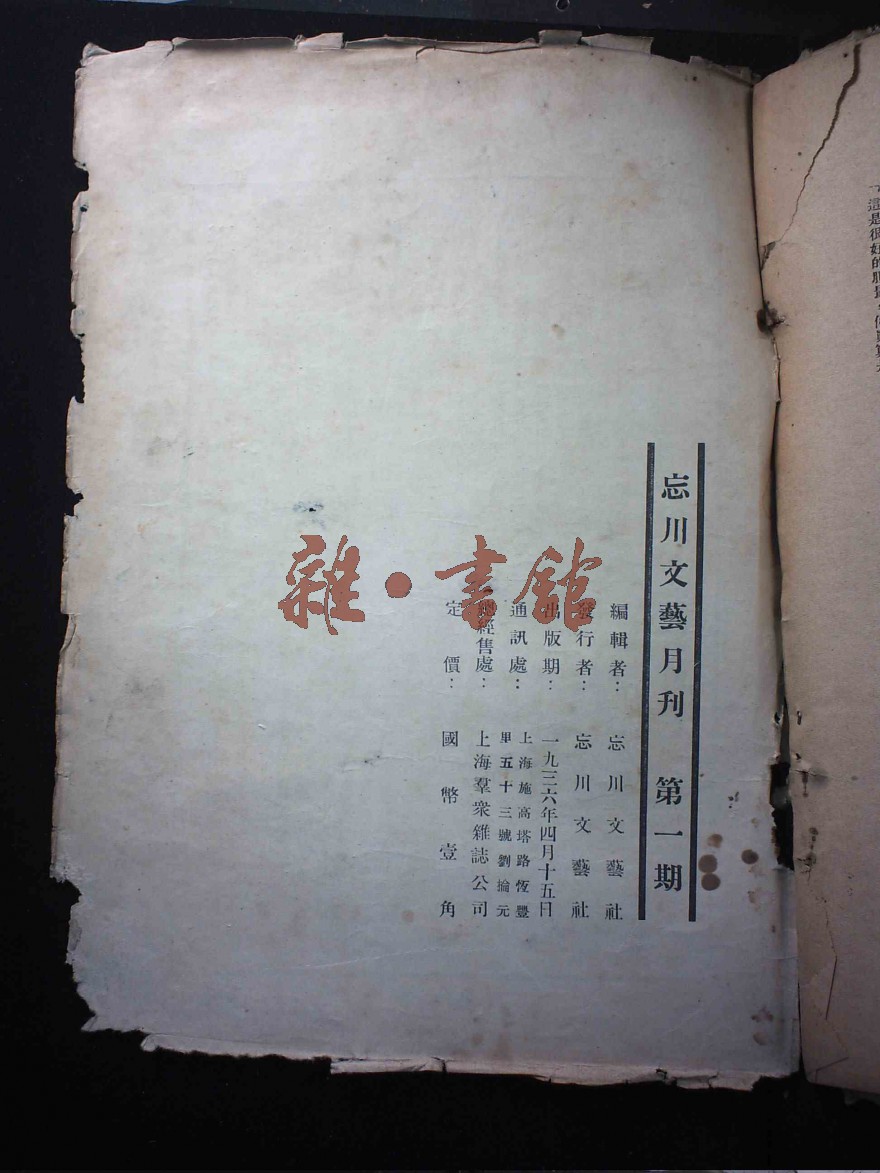 忘川文藝月刊 第一期
編輯者：忘川文藝社
發行者：忘川文藝社
出版期：一九三六年四月十五日
通訊處：上海施高塔路恆豐
里五十三號劉掄元
總經售處：上海羣衆雜誌公司
定價：國幣壹角
雜·書館
「這是很好的